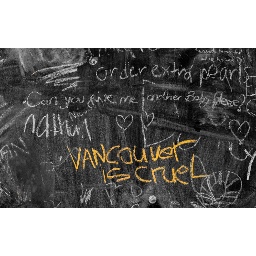 order extra pearl
Can you give me another Baby please
VANCOUVER
IS CRUEL